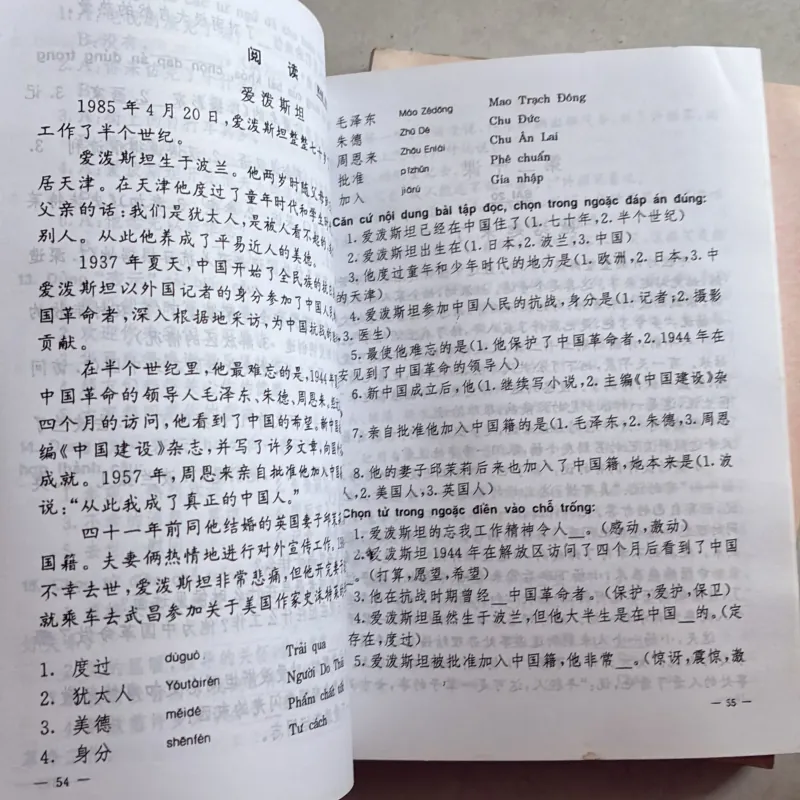 阅 读
爱泼斯坦
1985 年 4 月 20 日，爱泼斯坦整整七十
工作了半个世纪。
爱泼斯坦生于波兰。他两岁时随父母
居天津。在天津他度过了童年时代和学生
父亲的话：我们是犹太人，是被人看不起的
别人。从此他养成了平易近人的美德。
1937 年夏天，中国开始了全民族的抗
爱泼斯坦以外国记者的身分参加了中国人
国革命者，深入根据地采访，为中国抗战
贡献。
在半个世纪里，他最难忘的是，1944
中国革命的领导人毛泽东、朱德、周恩来。
四个月的访问，他看到了中国的希望。新中国
编《中国建设》杂志，并写了许多文章，向国
成就。1957 年，周恩来亲自批准他加入中国
说：“从此我成了真正的中国人。”
四十一年前同他结婚的英国妻子邱茉莉
国籍。夫妻俩热情地进行对外宣传工作。
不幸去世，爱泼斯坦非常悲痛，但他开完
就乘车去武昌参加关于美国作家史沫特莱
1. 度过 dùguò Trải qua
2. 犹太人 Yóutàirén Người Do Thái
3. 美德 měidé Phẩm chất tốt
4. 身分 shēnfèn Tư cách
— 54 —
毛泽东 Máo Zédōng Mao Trạch Đông
朱德 Zhū Dé Chu Đức
周恩来 Zhōu Ēnlái Chu Ân Lai
批准 pīzhǔn Phê chuẩn
加入 jiārù Gia nhập
Căn cứ nội dung bài tập đọc, chọn trong ngoặc đáp án đúng:
1. 爱泼斯坦已经在中国住了(1. 七十年，2. 半个世纪)
2. 爱泼斯坦出生在(1. 日本，2. 波兰，3. 中国)
3. 他度过童年和少年时代的地方是(1. 欧洲，2. 日本，3. 中
的天津)
4. 爱泼斯坦参加中国人民的抗战，身分是(1. 记者；2. 摄影
3. 医生)
5. 最使他难忘的是(1. 他保护了中国革命者，2. 1944 年在
安见到了中国革命的领导人)
6. 新中国成立后，他(1. 继续写小说，2. 主编《中国建设》杂
7. 亲自批准他加入中国籍的是(1. 毛泽东，2. 朱德，3. 周恩
8. 他的妻子邱茉莉后来也加入了中国籍，她本来是(1. 波
人，2. 美国人，3. 英国人)
Chọn từ trong ngoặc điền vào chỗ trống:
1. 爱泼斯坦的忘我工作精神令人__。(感动，激动)
2. 爱泼斯坦 1944 年在解放区访问了四个月后看到了中国
__。(打算，愿望，希望)
3. 他在抗战时期曾经__中国革命者。(保护，爱护，保卫)
4. 爱泼斯坦虽然生于波兰，但他大半生是在中国__的。(定
存在，度过)
5. 爱泼斯坦被批准加入中国籍，他非常__。(惊讶，震惊，激
— 55 —